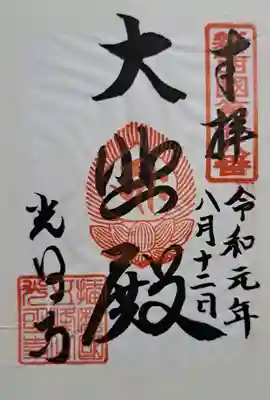 奉拝
令和元年
八月十二日
大悲殿
光明寺